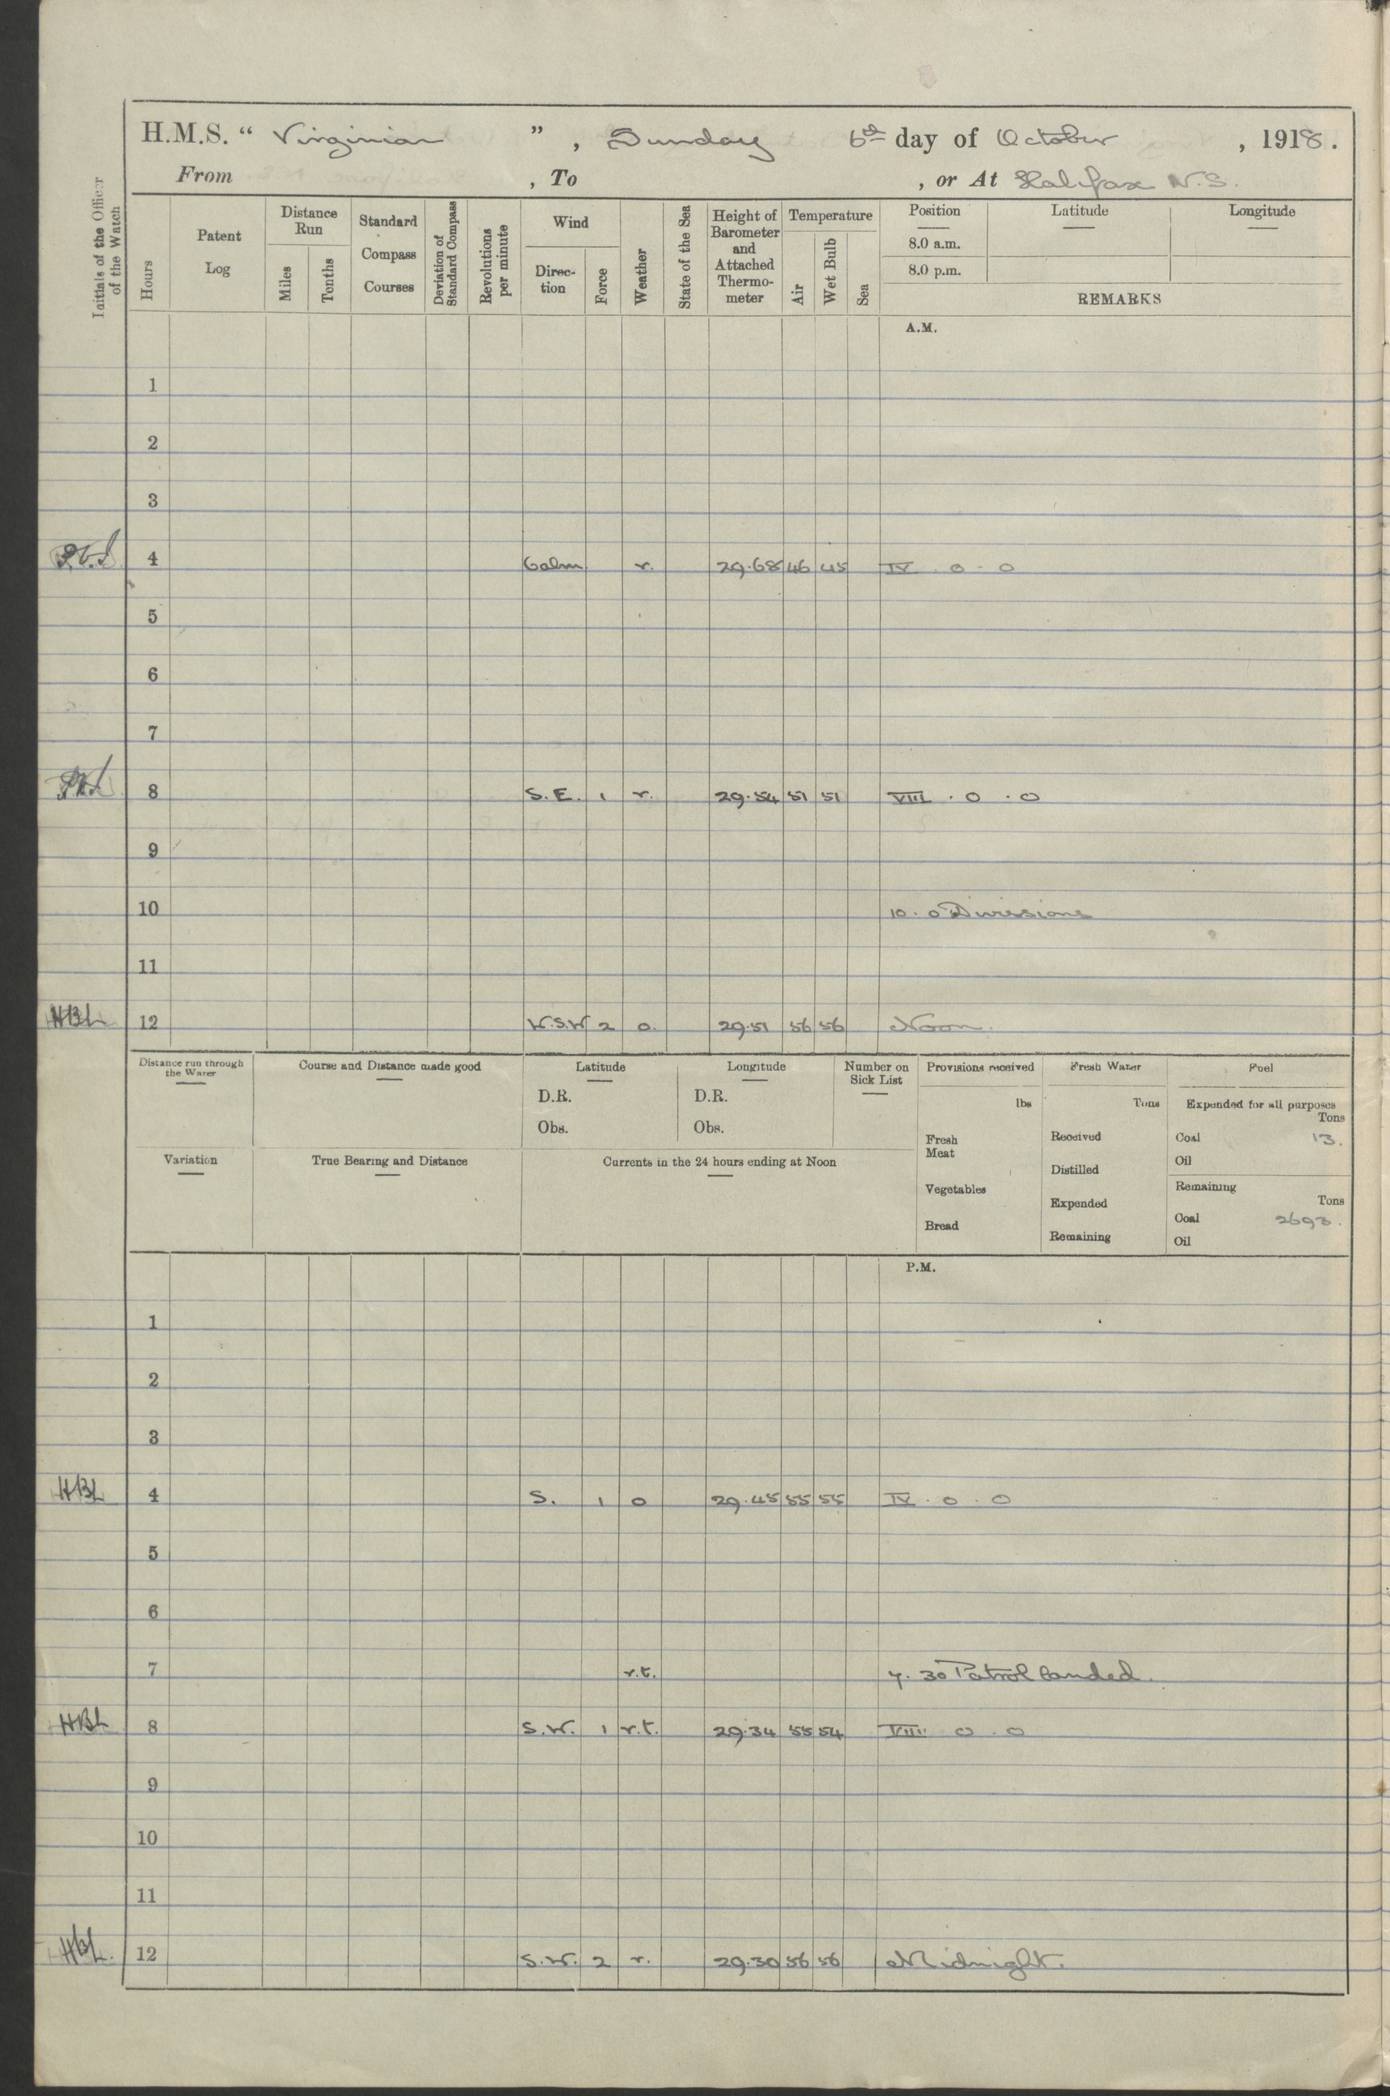 H.M.S. “ Virginian ”, Sunday 6th day of October, 1918.
From , To , or At Halifax N.S.
Initials of the Officer of the Watch
Hours
Patent Log
Distance Run
Miles
Tenths
Standard Compass Courses
Deviation of Standard Compass
Revolutions per minute
Wind
Direc-tion
Force
Weather
State of the Sea
Height of Barometer and Attached Thermo-meter
Temperature
Air
Wet Bulb
Sea
Position Latitude Longitude
8.0 a.m.
8.0 p.m.
REMARKS
A.M.
1
2
3
4 Calm r. 29.68 46 45 IV . 0 . 0
5
6
7
8 S.E. 1 r. 29.54 51 51 VIII . 0 . 0
9
10 10.0 Divisions
11
HBL 12 W.S.W 2 o. 29.51 56 56 Noon.
Distance run through the Water
Course and Distance made good
Latitude
D.R.
Obs.
Longitude
D.R.
Obs.
Number on Sick List
Provisions received
lbs
Fresh Meat
Vegetables
Bread
Fresh Water
Tons
Received
Distilled
Expended
Remaining
Fuel
Expended for all purposes
Tons
Coal 13.
Oil
Remaining
Tons
Coal 2693.
Oil
Variation
True Bearing and Distance
Currents in the 24 hours ending at Noon
P.M.
1
2
3
HBL 4 S. 1 o 29.45 55 55 IV . 0 . 0
5
6
7 r.t. 7.30 Patrol landed.
HBL 8 S.W. 1 r.t. 29.34 55 54 VIII 0 . 0
9
10
11
HBL. 12 S.W. 2 r. 29.30 56 56 Midnight.